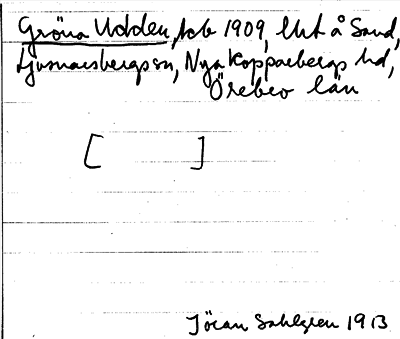 Gröna Udden, tob 1909, lht å Sand,
Ljusnarsbergs sn, Nya Kopparbergs hd,
Örebro län
[ ]
Jöran Sahlgren 1913